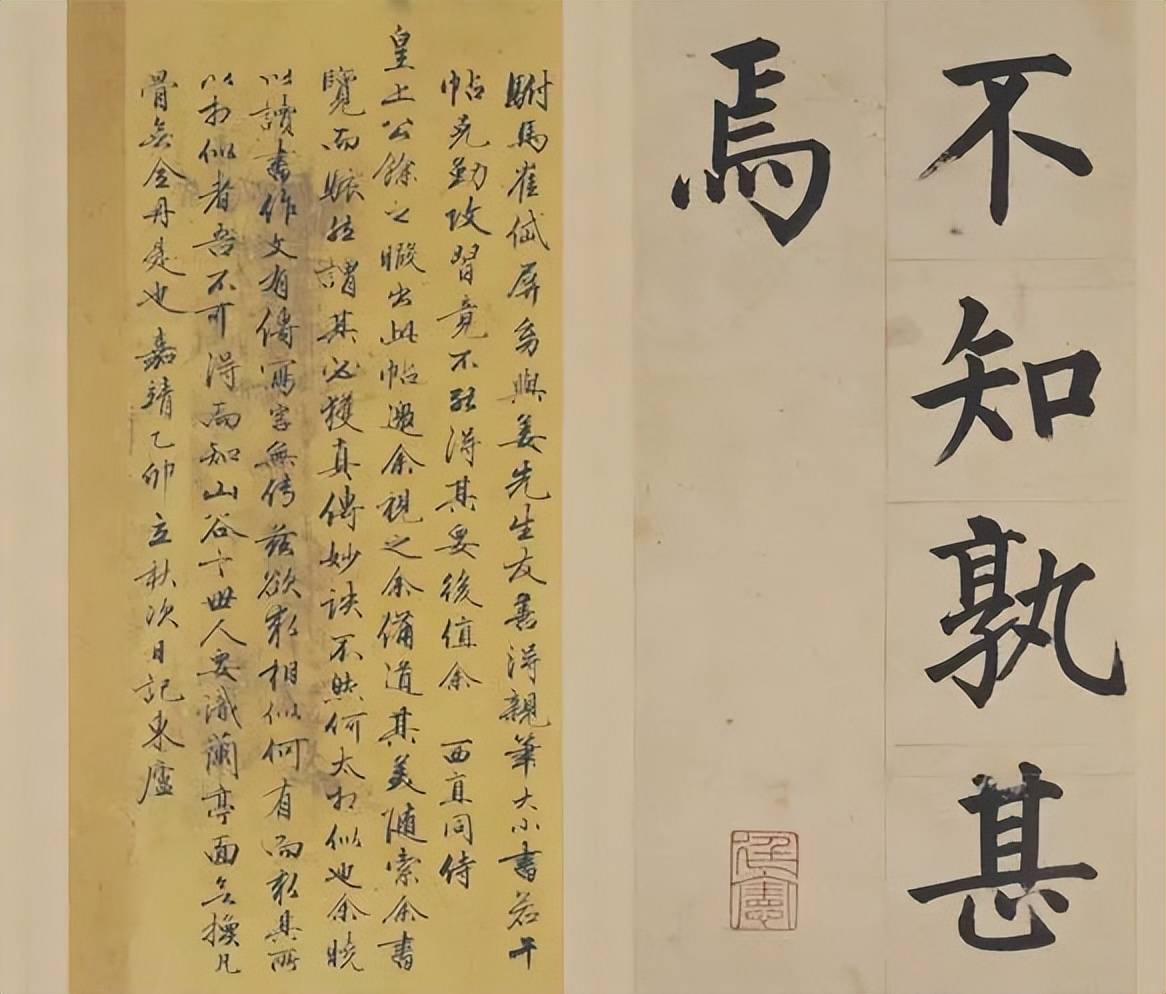 不知孰甚
焉
駙馬崔岱屏多與姜先生友善得親筆大小書若干
帖先勤攻習竟不能得其妥後值余 西直同侍
皇上公餘之暇出此帖邀余視之余備道其美隨索余書
覽而賑然謂其必獲真傳妙訣不然何太相似也余曉
以讀書作文有傳寫字無传茲欲求相似何有而求其所
以相似者吾不可得而知山谷亡世人要識蘭亭面無換凡
骨無金丹是也 嘉靖乙卯立秋次日記東廬